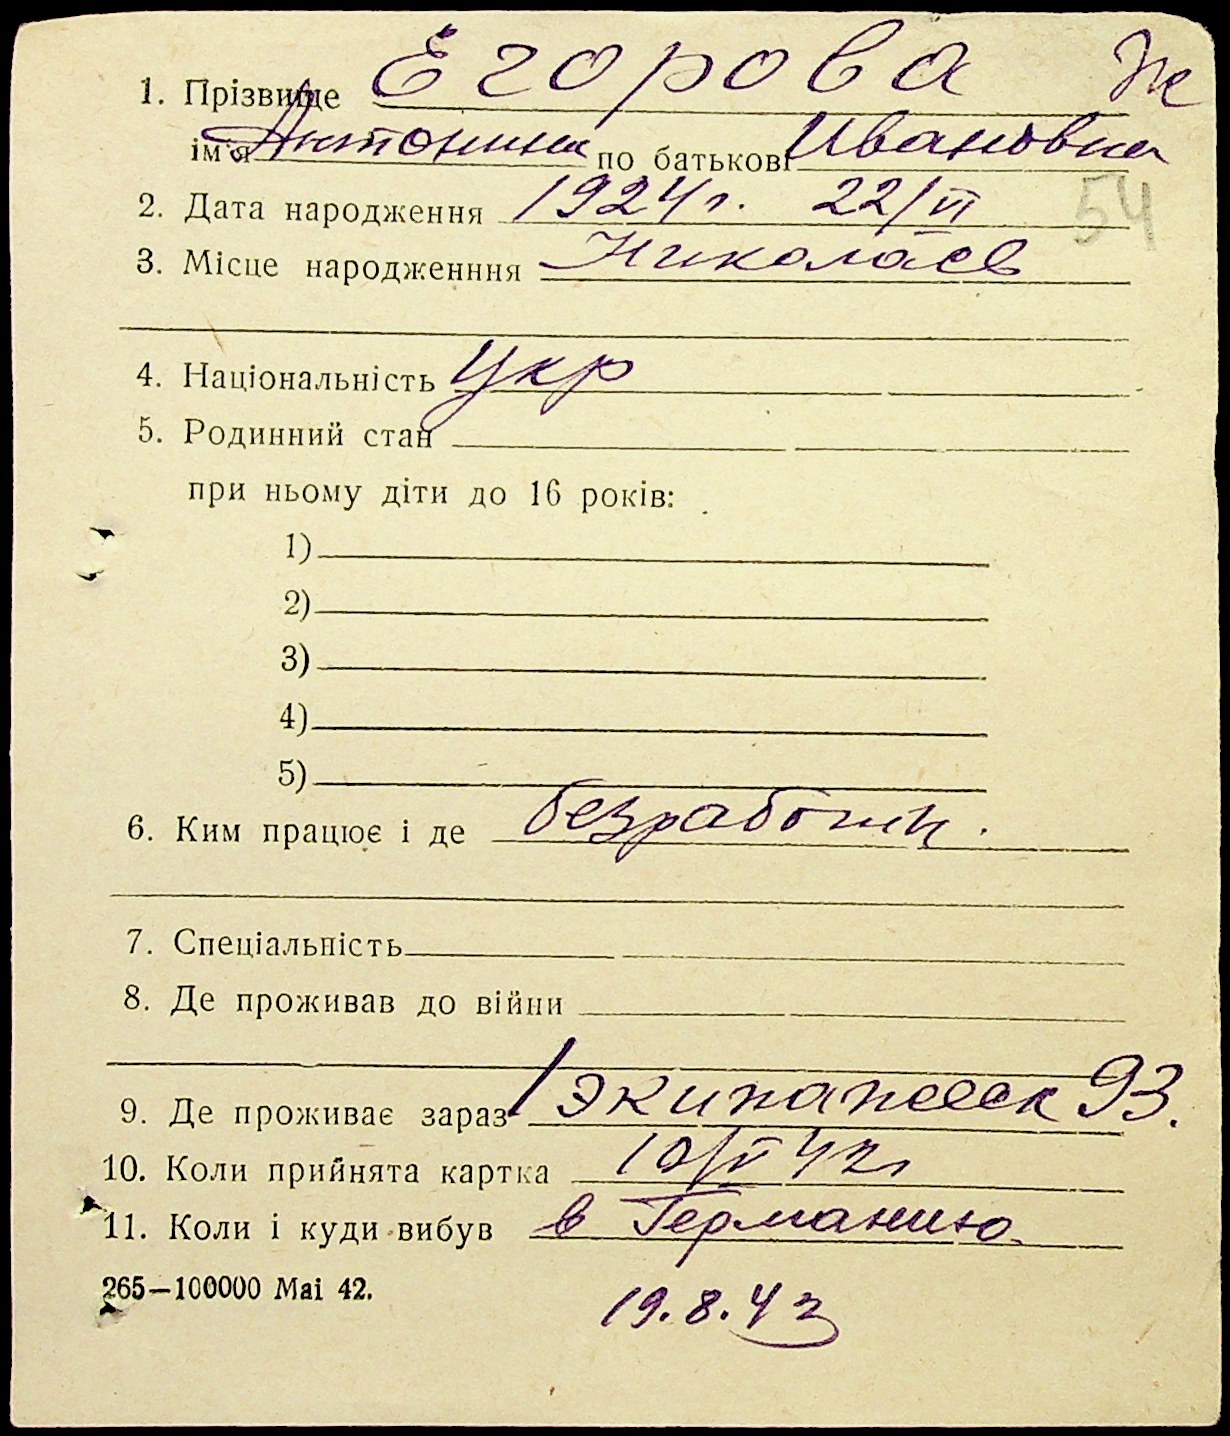 1. Прізвище Егорова Ж
ім'я Антонина по батькові Ивановна
2. Дата народження 1924 г. 22/VI
54
3. Місце народженння Николаев
4. Національність Укр
5. Родинний стан
при ньому діти до 16 років:
1)
2)
3)
4)
5)
6. Ким працює і де безработн.
7. Спеціальність
8. Де проживав до війни
9. Де проживає зараз 1 экипажеск 93.
10. Коли прийнята картка 10/VI 42 г
11. Коли і куди вибув в Германию.
265—100000 Mai 42.
19.8.42